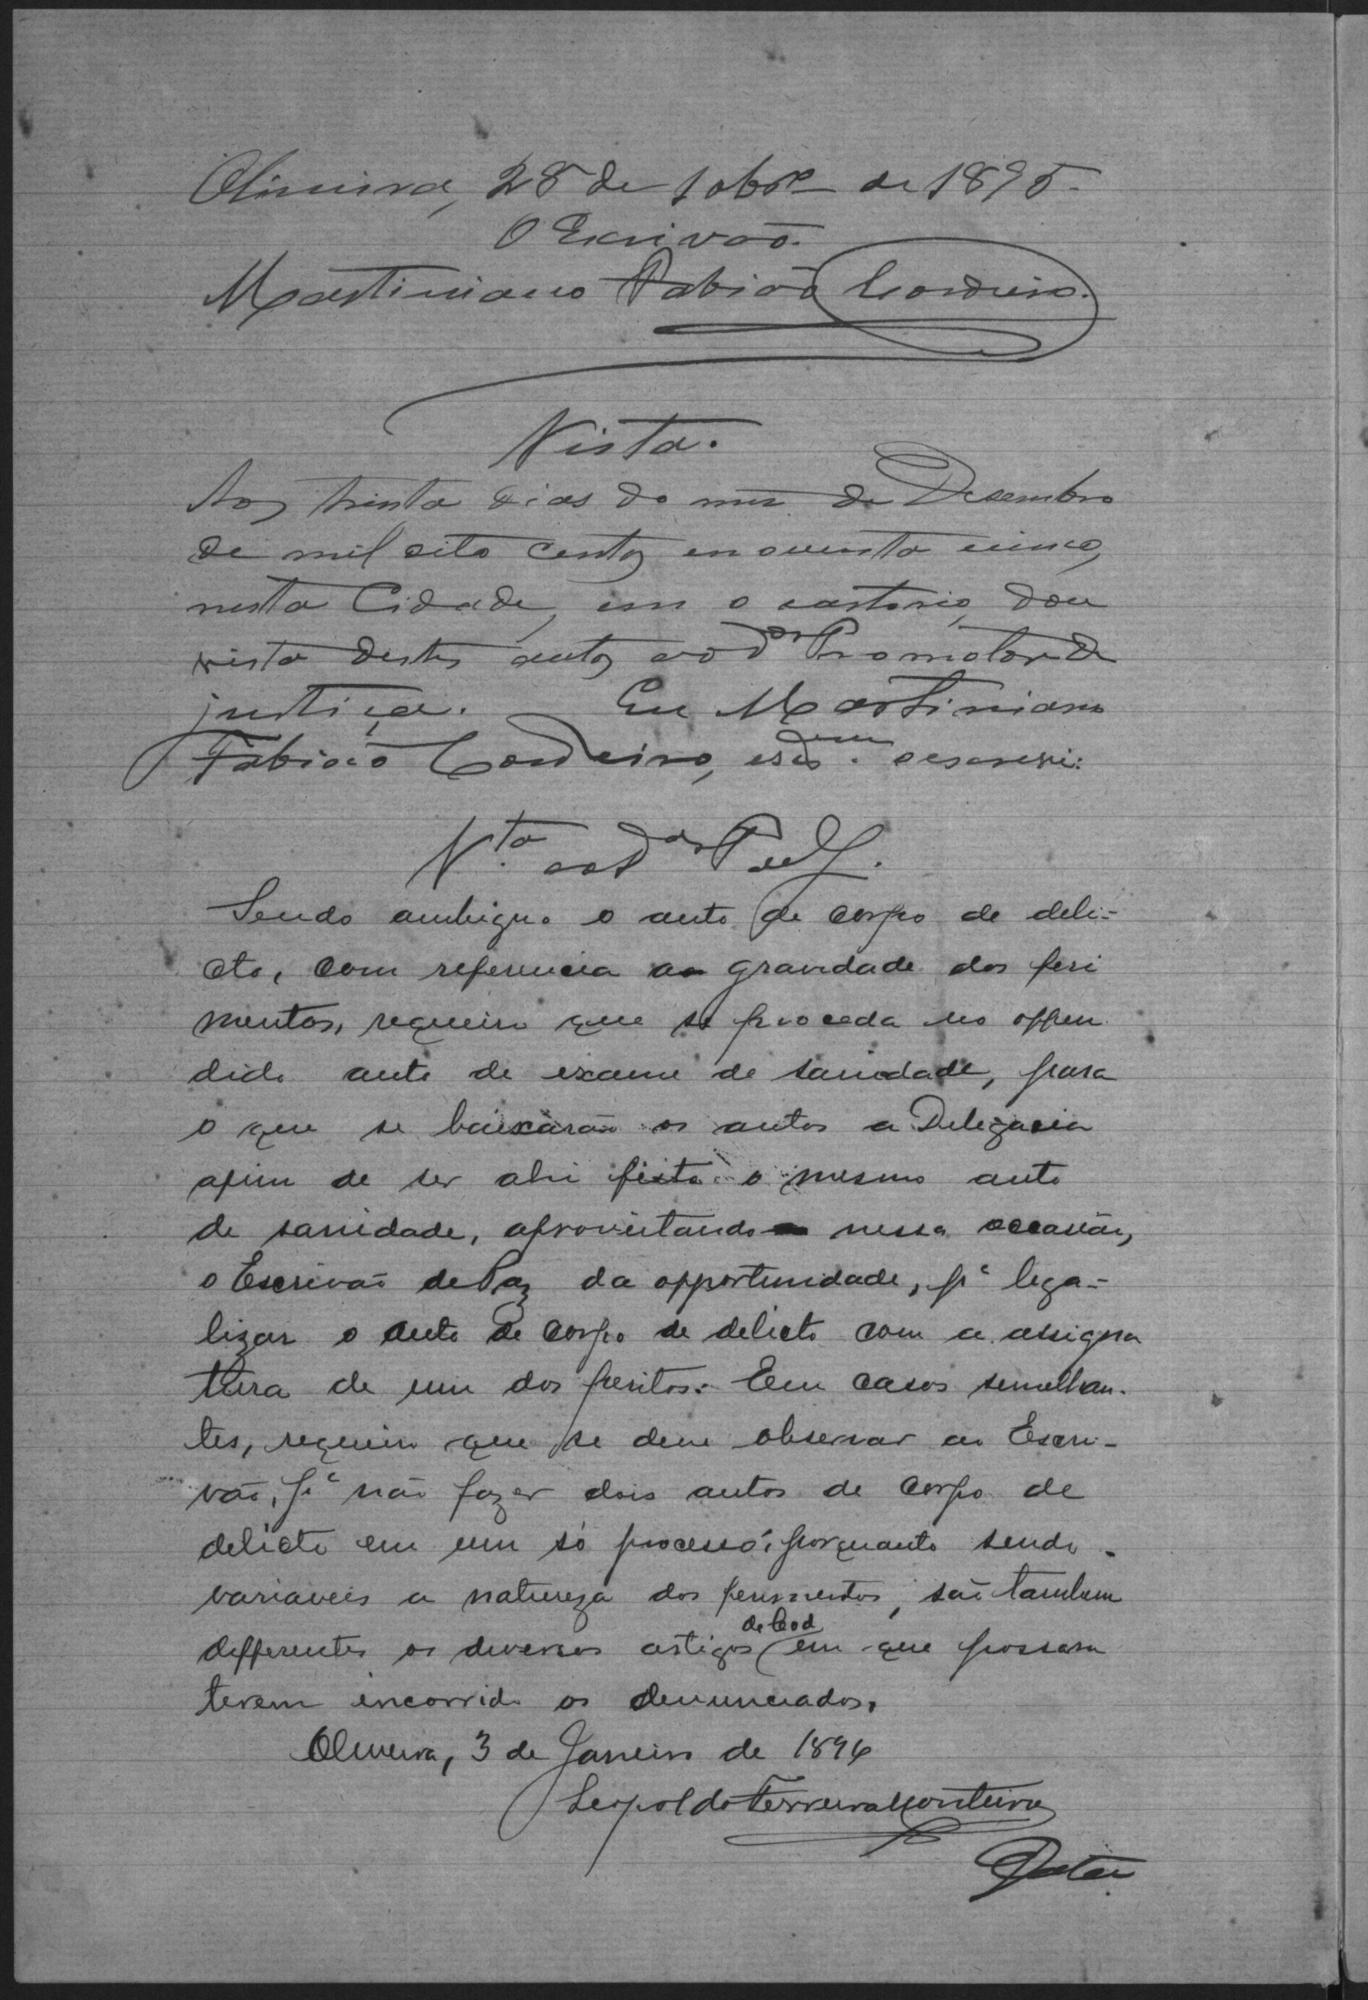 Oliveira, 28 de 10bro de 1895.
O Escrivão.
Martiniano Fabião Cordeiro.
Vista.
Aos trinta dias do mez de Desembro
de mil oito centos enoventa cinco,
nesta Cidade, em o cartorio, dou
vista destes autos ao dor Promotor da
justiça. Eu Martiniano
Fabião Cordeiro, escrivam oescrevi:
V.ta ao dor
Sendo ambiguo o auto de corpo de deli-
cto, com referencia a gravidade dos feri
mentos, requeiro que se proceda no offen
dido auto de exame de sanidade, para
o que se baixarão os autos a Delegacia
afim de ser ahi feito o mesmo auto
de sanidade, aproveitando nessa occasião,
o Escrivão de Paz da opportunidade, pa lega-
lizar o auto de corpo de delicto com a assigna
tura de um dos peritos. Em casos semelhan-
tes, requeiro que se deve observar ao Escri-
vão, pa não fazer dois autos de corpo de
delicto em um só processo; porquanto sendo
variaveis a natureza dos ferimentos, são tambem
differentes os diversos artigos do Cod em que possam
terem incorrido os denunciados.
Oliveira, 3 de Janeiro de 1896
Leopoldo Ferreira Monteiro
Data